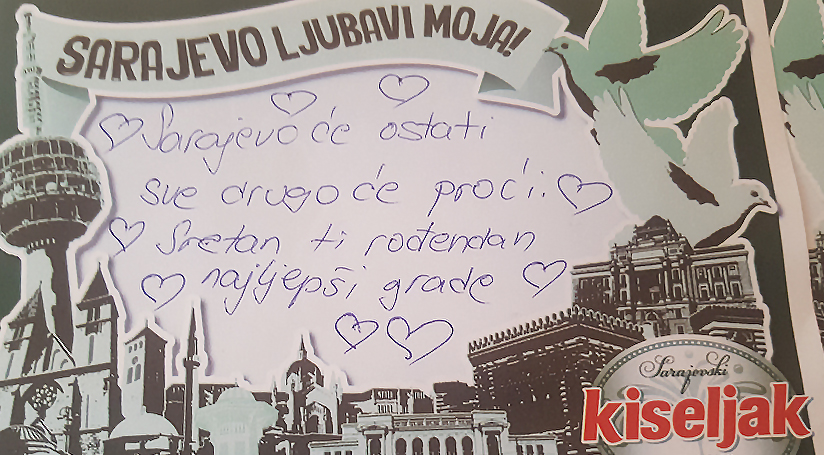 SARAJEVO LJUBAVI MOJA!
Sarajevo će ostati
sve drugo će proći.
Sretan ti rođendan
najljepši grade
Sarajevski
kiseljak